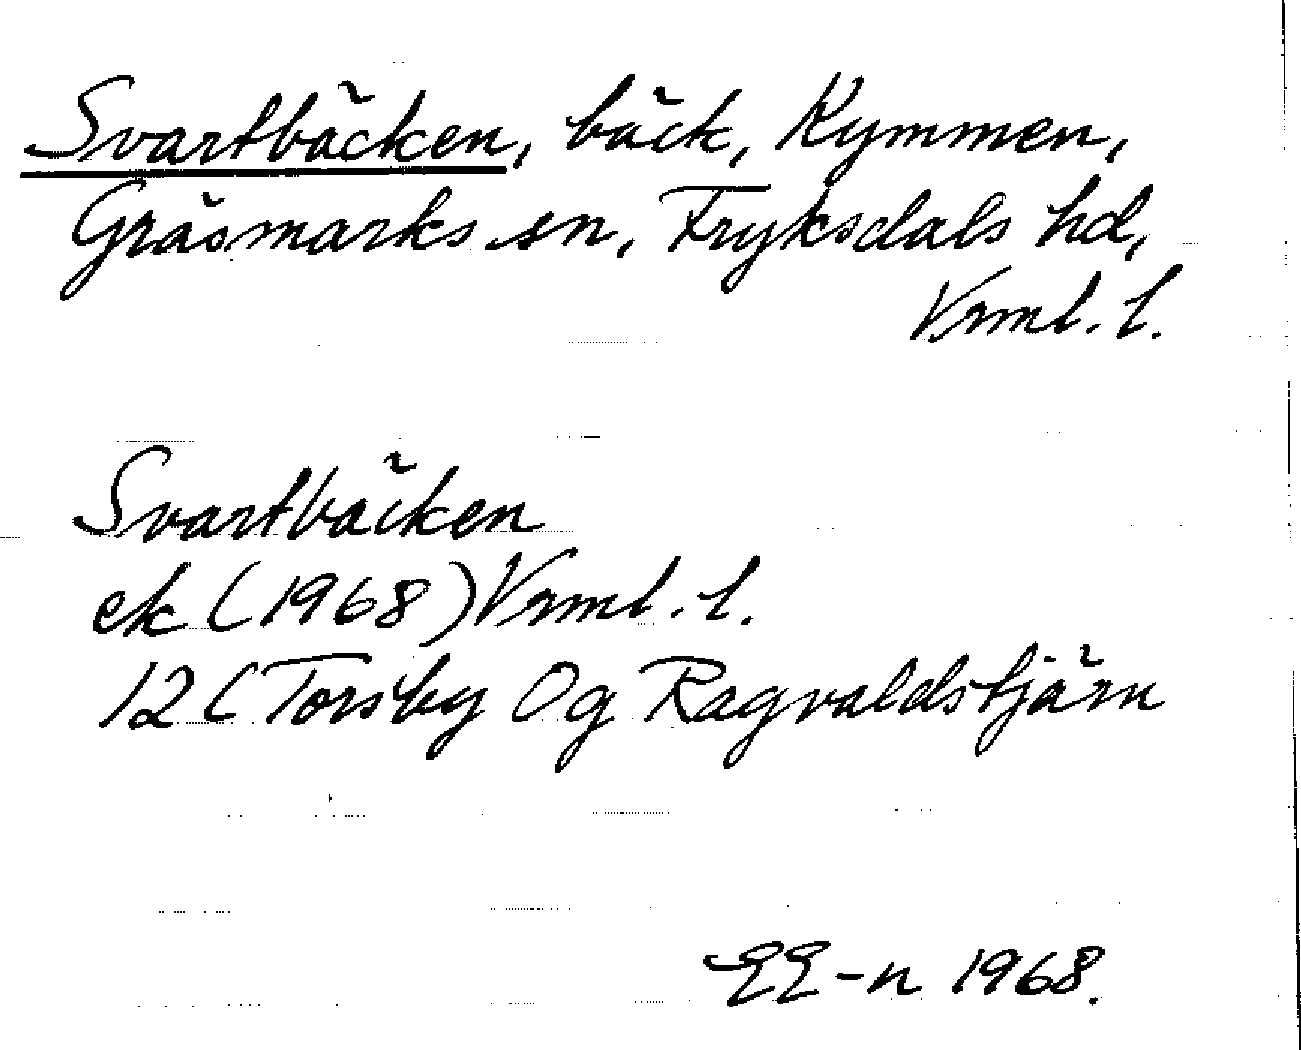 Svartbäcken, bäck, Kymmen,
Gräsmarks sn, Fryksdals hd,
Vrml. l.
Svartbäcken
ek (1968) Vrml. l.
12 C Torsby Og Ragvaldstjärn
EE-n 1968.